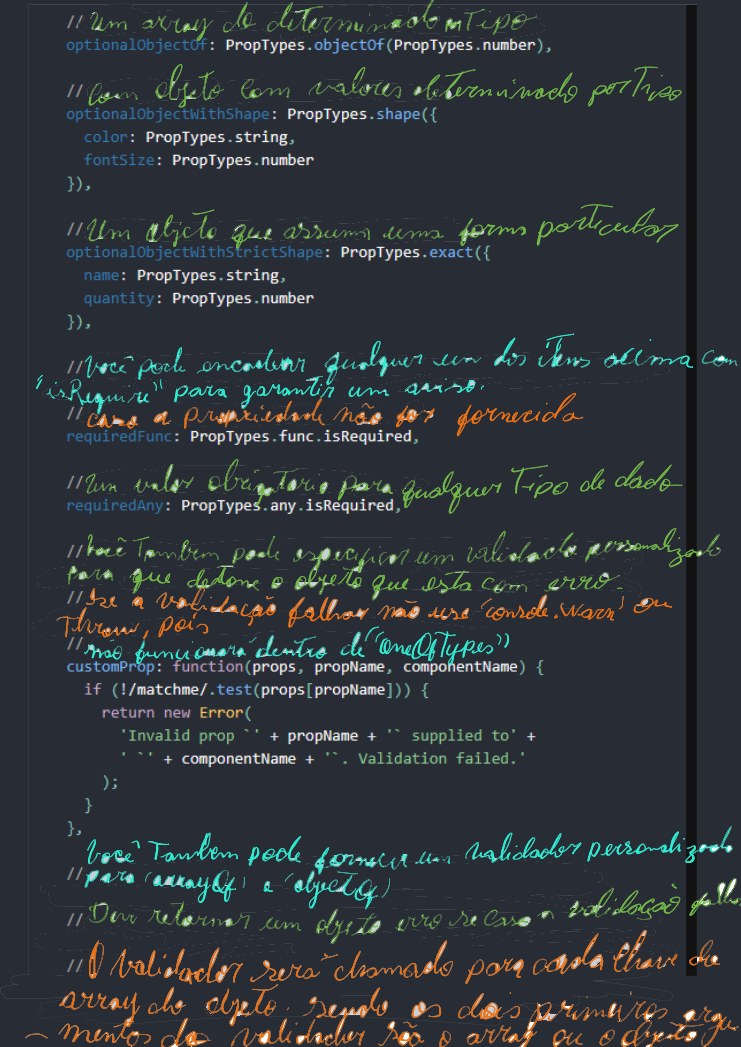 // Um array de determinado Tipo
optionalObjectOf: PropTypes.objectOf(PropTypes.number),
// objeto com valores determinado por Tipo
optionalObjectWithShape: PropTypes.shape({
color: PropTypes.string,
fontSize: PropTypes.number
}),
// Um objeto que assuma uma forma particular
optionalObjectWithStrictShape: PropTypes.exact({
name: PropTypes.string,
quantity: PropTypes.number
}),
// Você pode encadear qualquer um dos itens acima com
"isRequire" para garantir um aviso.
// caso a propriedade não for fornecida
requiredFunc: PropTypes.func.isRequired,
// Um valor obrigatorio para qualquer Tipo de dado
requiredAny: PropTypes.any.isRequired,
// Você Tambem pode especificar um validado personalizado
Para que detone o objeto que esta com erro.
// Se a validação falhar não use 'console.warn' ou
Throw, pois
// não funcionará dentro de "oneOfTypes")
customProp: function(props, propName, componentName) {
if (!/matchme/.test(props[propName])) {
return new Error(
'Invalid prop `' + propName + '` supplied to' +
' `' + componentName + '`. Validation failed.'
);
}
},
Você Tambem pode fornecer um validador personalizado
// para 'arrayOf' e 'objetOf)
// Deve retornar um objeto erro se caso a validação falha
// O Validador será chamado para cada Chave do
array do objeto. sendo os dois primeiros argu
- mentos do validador são o array ou o objeto